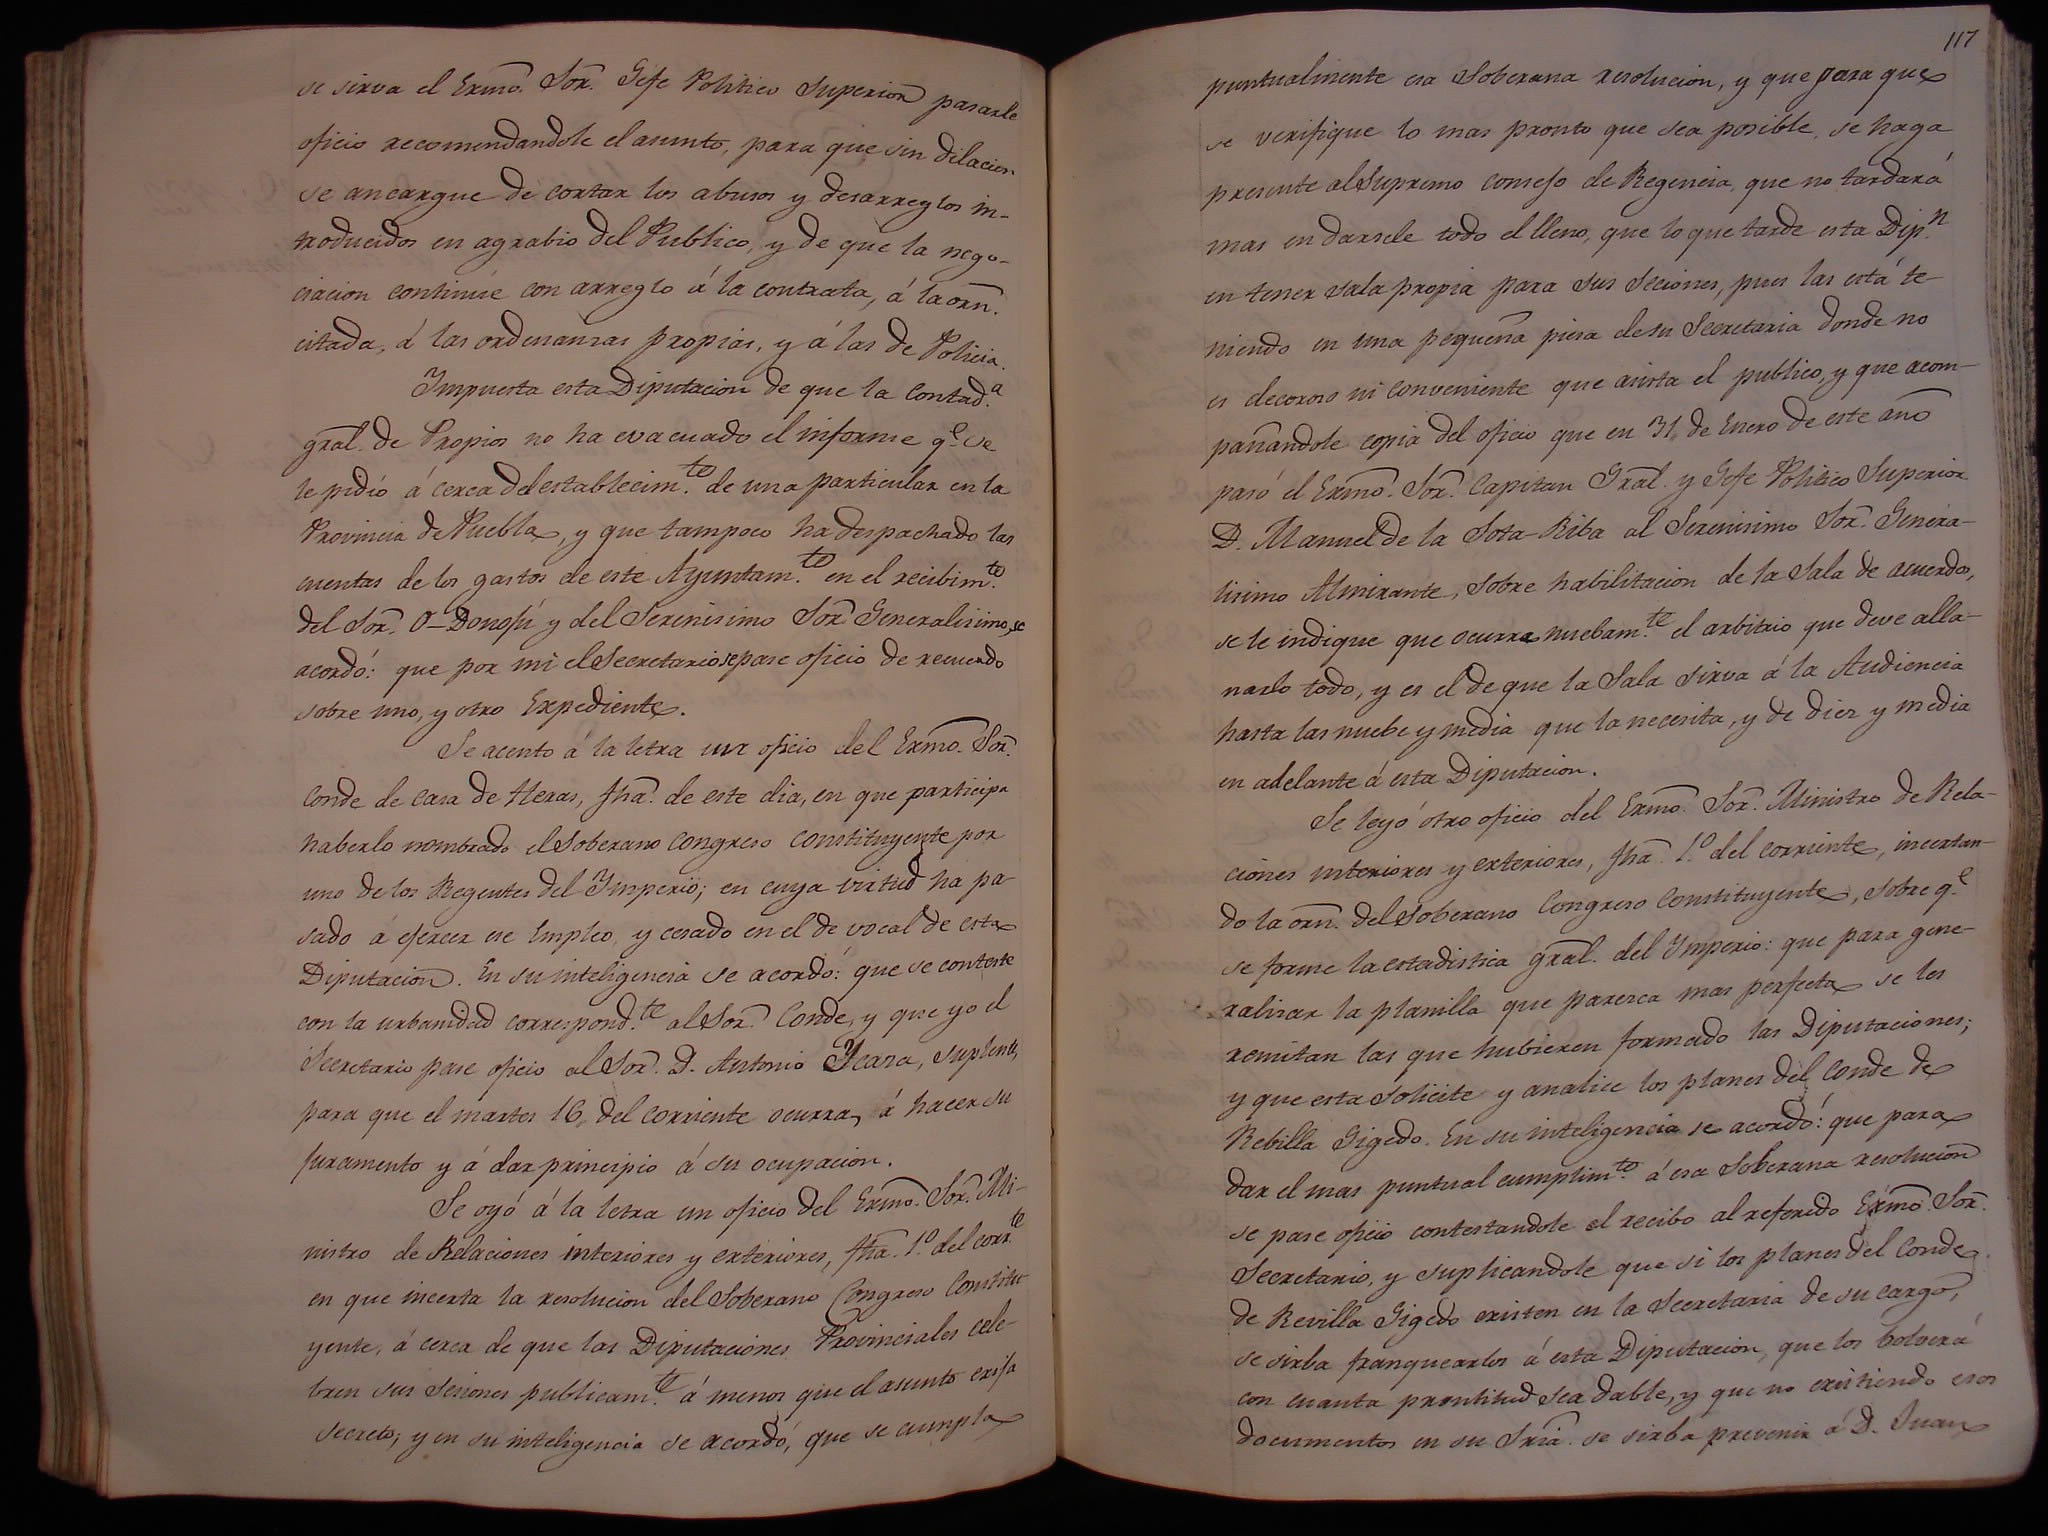 se sirva el Exmo. Sor. Gefe Politico Superior pasarle
oficio recomendandole el asunto, para que sin dilacion
se ancargue de cortar los abusos y desarreglos in-
troducidos en agrabio del Publico, y de que la nego-
ciacion continúe con arreglo á la contrata, á la orn.
citada, á las ordenanzas propias, y á las de Policia.
Impuesta esta Diputacion de que la Contad.a
gral. de Propios no ha evacuado el informe q.e se
le pidió á cerca del establecim.to de una particular en la
Provincia de Puebla, y que tampoco ha despachado las
cuentas de los gastos de este Ayuntam.to en el recibim.to
del Sor. O-Donojú y del Serenisimo Sor. Generalisimo, se
acordó: que por mi el Secretario se pase oficio de recuerdo
sobre uno, y otro Expediente.
Se acento á la letra un oficio del Exmo. Sor.
Conde de Casa de Heras, fha. de este dia, en que participa
haberlo nombrado el Soberano Congreso constituyente por
uno de los Regentes del Imperio; en cuya virtud ha pa-
sado á ejercer ese Empleo, y cesado en el de vocal de esta
Diputacion. En su inteligencia se acordó: que se conteste
con la urbanidad correspond.te al Sor. Conde, y que yo el
Secretario pase oficio al Sor. D. Antonio Ycaza, suplente,
para que el martes 16 del corriente ocurra, á hacer su
juramento y á dar principio á su ocupacion.
Se oyó á la letra un oficio del Exmo. Sor. Mi-
nistro de Relaciones interiores y exteriores, fha. 1.o del corr.te
en que incerta la resolucion del Soberano Congreso Constitu
yente, á cerca de que las Diputaciones Provinciales cele-
bren sus sesiones publicam.te á menos que el asunto exija
secreto; y en su inteligencia se acordó, que se cumpla
117
puntualmente esa Soberana resolucion, y que para que
se verifique lo mas pronto que sea posible, se haga
presente al Supremo consejo de Regencia, que no tardará
mas en darsele todo el lleno, que lo que tarde esta Dip.n
en tener sala propia para sus seciones, pues las está te
niendo en una pequeña piesa de su Secretaria donde no
es decoroso ni conveniente que asista el publico, y que acom-
pañandole copia del oficio que en 31 de Enero de este año
pasó el Exmo. Sor. Capitan Gral. y Gefe Politico Superior
D. Manuel de la Sota Riba al Serenisimo Sor. Genera-
lisimo Almirante, sobre habilitacion de la Sala de acuerdos,
se le indique que ocurra nuebam.te el arbitrio que deve alla-
narlo todo, y es el de que la Sala sirva á la Audiencia
hasta las nuebe y media que la necesita, y de diez y media
en adelante á esta Diputacion.
Se leyó otro oficio del Exmo. Sor. Ministro de Rela-
ciones interiores y exteriores, fha. 1.o del corriente, incertan-
do la orn. del Soberano Congreso Constituyente, sobre q.e
se forme la estadistica gral. del Imperio: que para gene-
ralisar la planilla que paresca mas perfecta se les
remitan las que hubieren formado las Diputaciones;
y que esta solicite y analice los planes del Conde de
Rebilla Gigedo. En su inteligencia se acordó: que para
dar el mas puntual cumplim.to á esa Soberana resolucion
se pase oficio contestandole el recibo al referido Exmo. Sor.
Secretario, y suplicandole que si los planes del Conde
de Revilla Gigedo existen en la Secretaria de su cargo,
se sirba franquearlos á esta Diputacion, que los bolverá
con cuanta prontitud sea dable, y que no existiendo esos
documentos en su Sría. se sirba prevenir á D. Juan